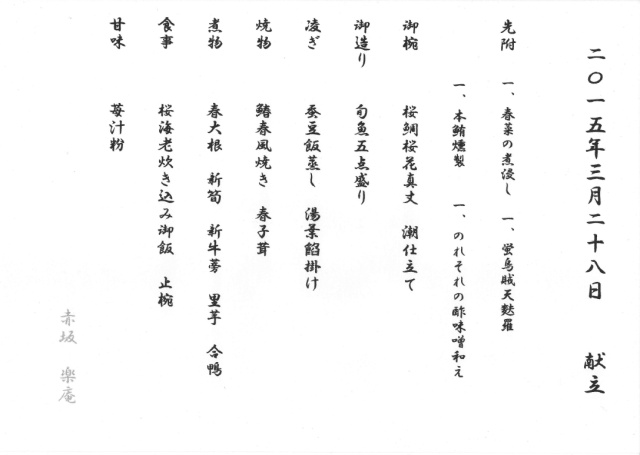 二〇一五年三月二十八日 献立
先附 一、春菜の煮浸し 一、蛍烏賊天麩羅
一、本鮪燻製 一、のれそれの酢味噌和え
御椀 桜鯛桜花真丈 潮仕立て
御造り 旬魚五点盛り
凌ぎ 蚕豆飯蒸し 湯葉餡掛け
焼物 鰆春風焼き 春子茸
煮物 春大根 新筍 新牛蒡 里芋 合鴨
食事 桜海老炊き込み御飯 止椀
甘味 苺汁粉
赤坂 楽庵